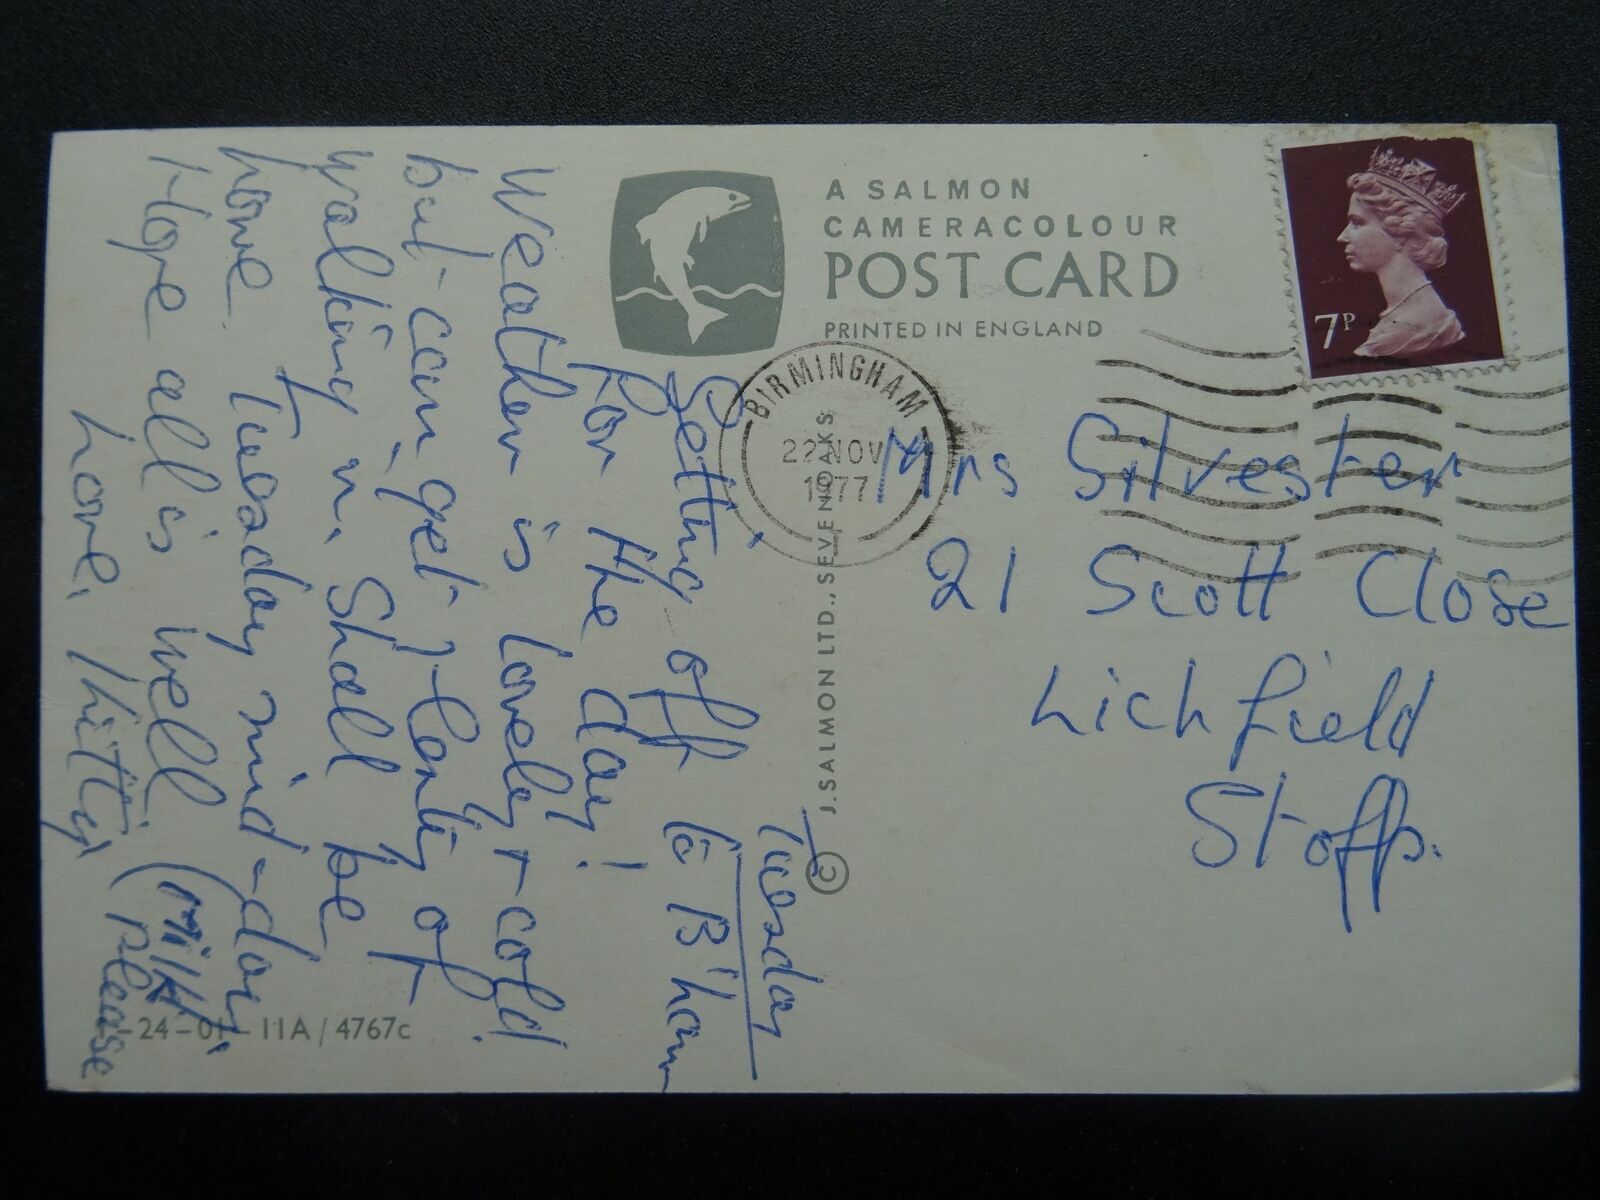 A SALMON
CAMERACOLOUR
POST CARD
PRINTED IN ENGLAND
7P
BIRMINGHAM
22 NOV
1977
Mrs Silvester
21 Scott Close
Lichfield
Staffs.
© J. SALMON LTD., SEVENOAKS
Tuesday
Setting off to B'ham
for the day!
Weather is lovely & cold
but can get plenty of
walking in. Shall be
home Tuesday mid-day.
Hope all is well (Milk
Love, please
-24-01-11A/4767c